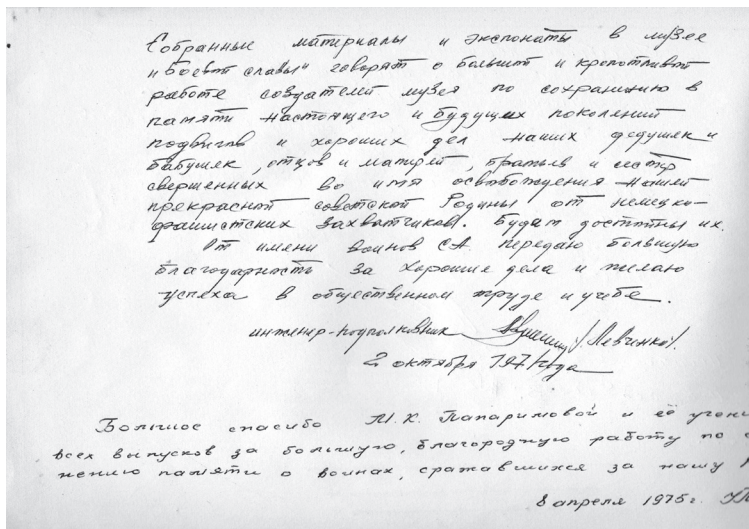 Собранные материалы и экспонаты в музее
"боевой славы" говорят о большой и кропотливой
работе создателей музея по сохранению в
памяти настоящего и будущих поколений
подвигов и хороших дел наших дедушек и
бабушек, отцов и матерей, братьев и сестёр
свершенных во имя освобождения нашей
прекрасной советской Родины от немецко-
фашистских захватчиков. Будем достойны их.
От имени воинов СА. передаю большую
благодарность за хорошие дела и желаю
успеха в общественном труде и учебе.
инженер-подполковник /Левченко/.
2 октября 1971 года
Большое спасибо М.К. Папаримовой и её учени
всех выпусков за большую, благородную работу по с
нению памяти о воинах, сражавшихся за нашу
8 апреля 1975г.